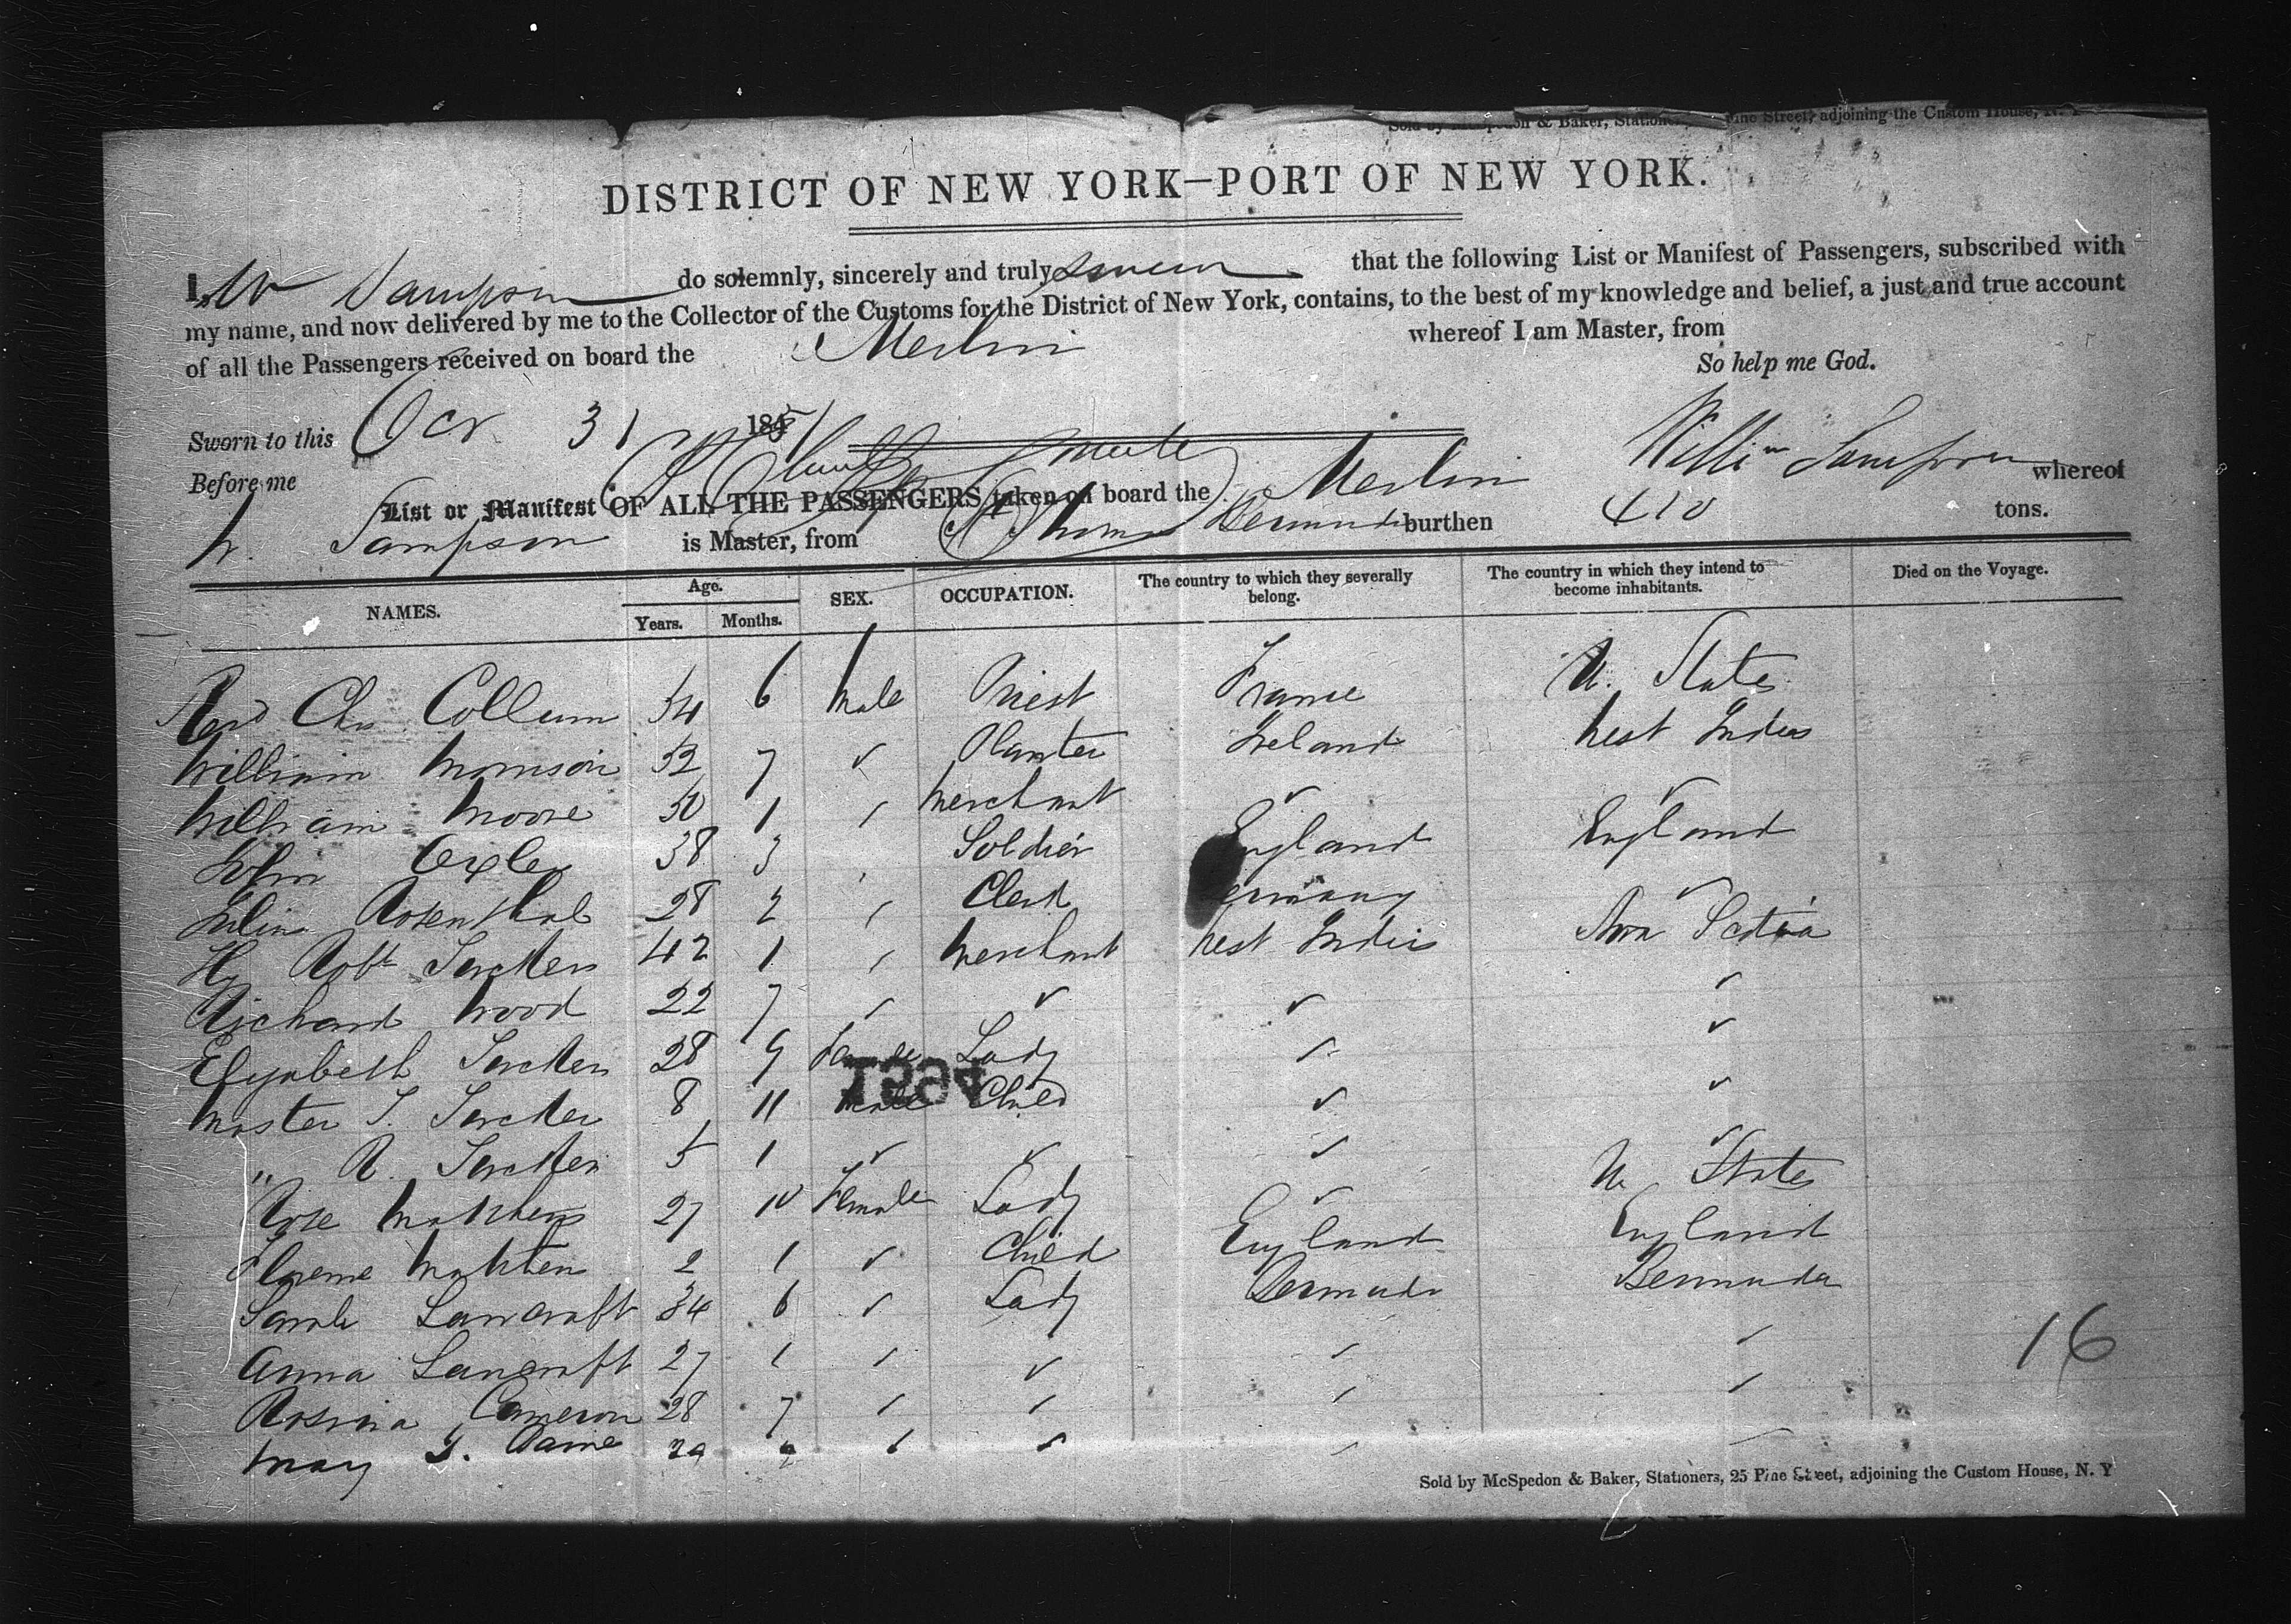 Sold by McSpedon & Baker, Stationers, Pine Street, adjoining the Custom House, N. Y
DISTRICT OF NEW YORK—PORT OF NEW YORK.
I, W Sampson do solemnly, sincerely and truly swear that the following List or Manifest of Passengers, subscribed with
my name, and now delivered by me to the Collector of the Customs for the District of New York, contains, to the best of my knowledge and belief, a just and true account
of all the Passengers received on board the Merlin whereof I am Master, from
So help me God.
Sworn to this Oct 31 1851
Before me Willm Sampson
List or Manifest OF ALL THE PASSENGERS taken on board the Merlin whereof
W. Sampson is Master, from St Thomas Bermuda burthen 410 tons.
NAMES. Age. Years. Months. SEX. OCCUPATION. The country to which they severally belong. The country in which they intend to become inhabitants. Died on the Voyage.
Revd Chs Collum 54 6 Male Priest France U. States
William Morrison 52 7 ✓ Planter Ireland West Indies
William Moore 50 1 ✓ Merchant ✓ ✓
John Oxley 38 3 ✓ Soldier England England
Rosenthal 28 2 ✓ Clerk Germany ✓
Hy Robt 42 1 ✓ Merchant West Indies Nova Scotia
Richard Wood 22 7 ✓ ✓ ✓ ✓
Elizabeth 28 9 Female Lady ✓ ✓
Master T. 8 11 Male Child ✓ ✓
" R. 5 1 ✓ ✓ ✓ ✓
Rose 27 10 Female Lady ✓ U States
2 1 ✓ Child England England
Sarah Lancraft 34 6 ✓ Lady Bermuda Bermuda
Anna Lancraft 27 1 ✓ ✓ ✓ ✓
Rosina Cameron 28 7 ✓ ✓ ✓ ✓
May
1334
16
Sold by McSpedon & Baker, Stationers, 25 Pine Street, adjoining the Custom House, N. Y